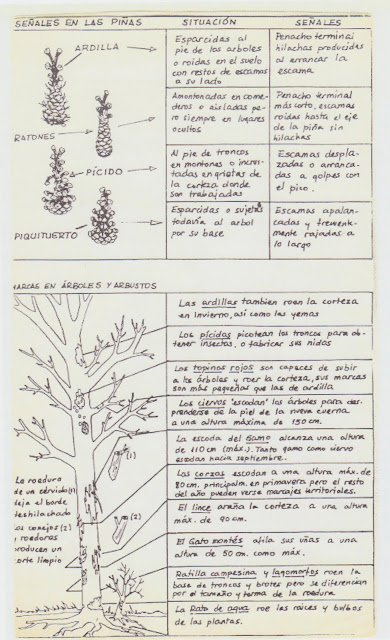 SEÑALES EN LAS PIÑAS
SITUACIÓN
SEÑALES
ARDILLA
Esparcidas al
pie de los arboles
o roidas en el suelo
con restos de escamas
a su lado
Penacho terminal
hilachas producidas
al arrancar la
escama
RATONES
Amontonadas en come-
deros o aisladas pe-
ro siempre en lugares
ocultos
Penacho terminal
más corto, escamas
roidas hasta el eje
de la piña sin
hilachas
PÍCIDO
Al pie de troncos
en montones o incrus-
tadas en grietas de
la corteza donde
son trabajadas
Escamas despla-
zadas o arranca-
das a golpes con
el pico.
PIQUITUERTO
Esparcidas o sujetas
todavía al arbol
por su base
Escamas apalan-
cadas y frecuente-
mente rajadas a
lo largo
MARCAS EN ÁRBOLES Y ARBUSTOS
Las ardillas tambien roen la corteza
en invierno, así como las yemas
Los pícidos picotean los troncos para ob-
tener insectos, o fabricar sus nidos
Los topinos rojos son capaces de subir
a los árboles y roer la corteza, sus marcas
son más pequeñas que las de ardilla
Los ciervos "escodan" los árboles para des-
prenderse de la piel de la nueva cuerna
a una altura máxima de 150 cm.
La escoda del Gamo alcanza una altura
de 110 cm (máx.). Tanto gamo como ciervo
escodan hacia septiembre.
Las corzas escodan a una altura máx. de
80 cm. principalm. en primavera pero el resto
del año pueden verse marcajes territoriales.
El lince araña la corteza a una altura
máx. de 90 cm.
El Gato montés afila sus uñas a una
altura de 50 cm. como máx.
Ratilla campesina y lagomorfos roen la
base de troncos y brotes pero se diferencian
por el tamaño y forma de la roedura
La Rata de agua roe las raíces y bulbos
de las plantas.
(1)
(2)
La roedura
de un cérvido(1)
deja el borde
deshilachado
los conejos(2)
y roedores
producen un
corte limpio